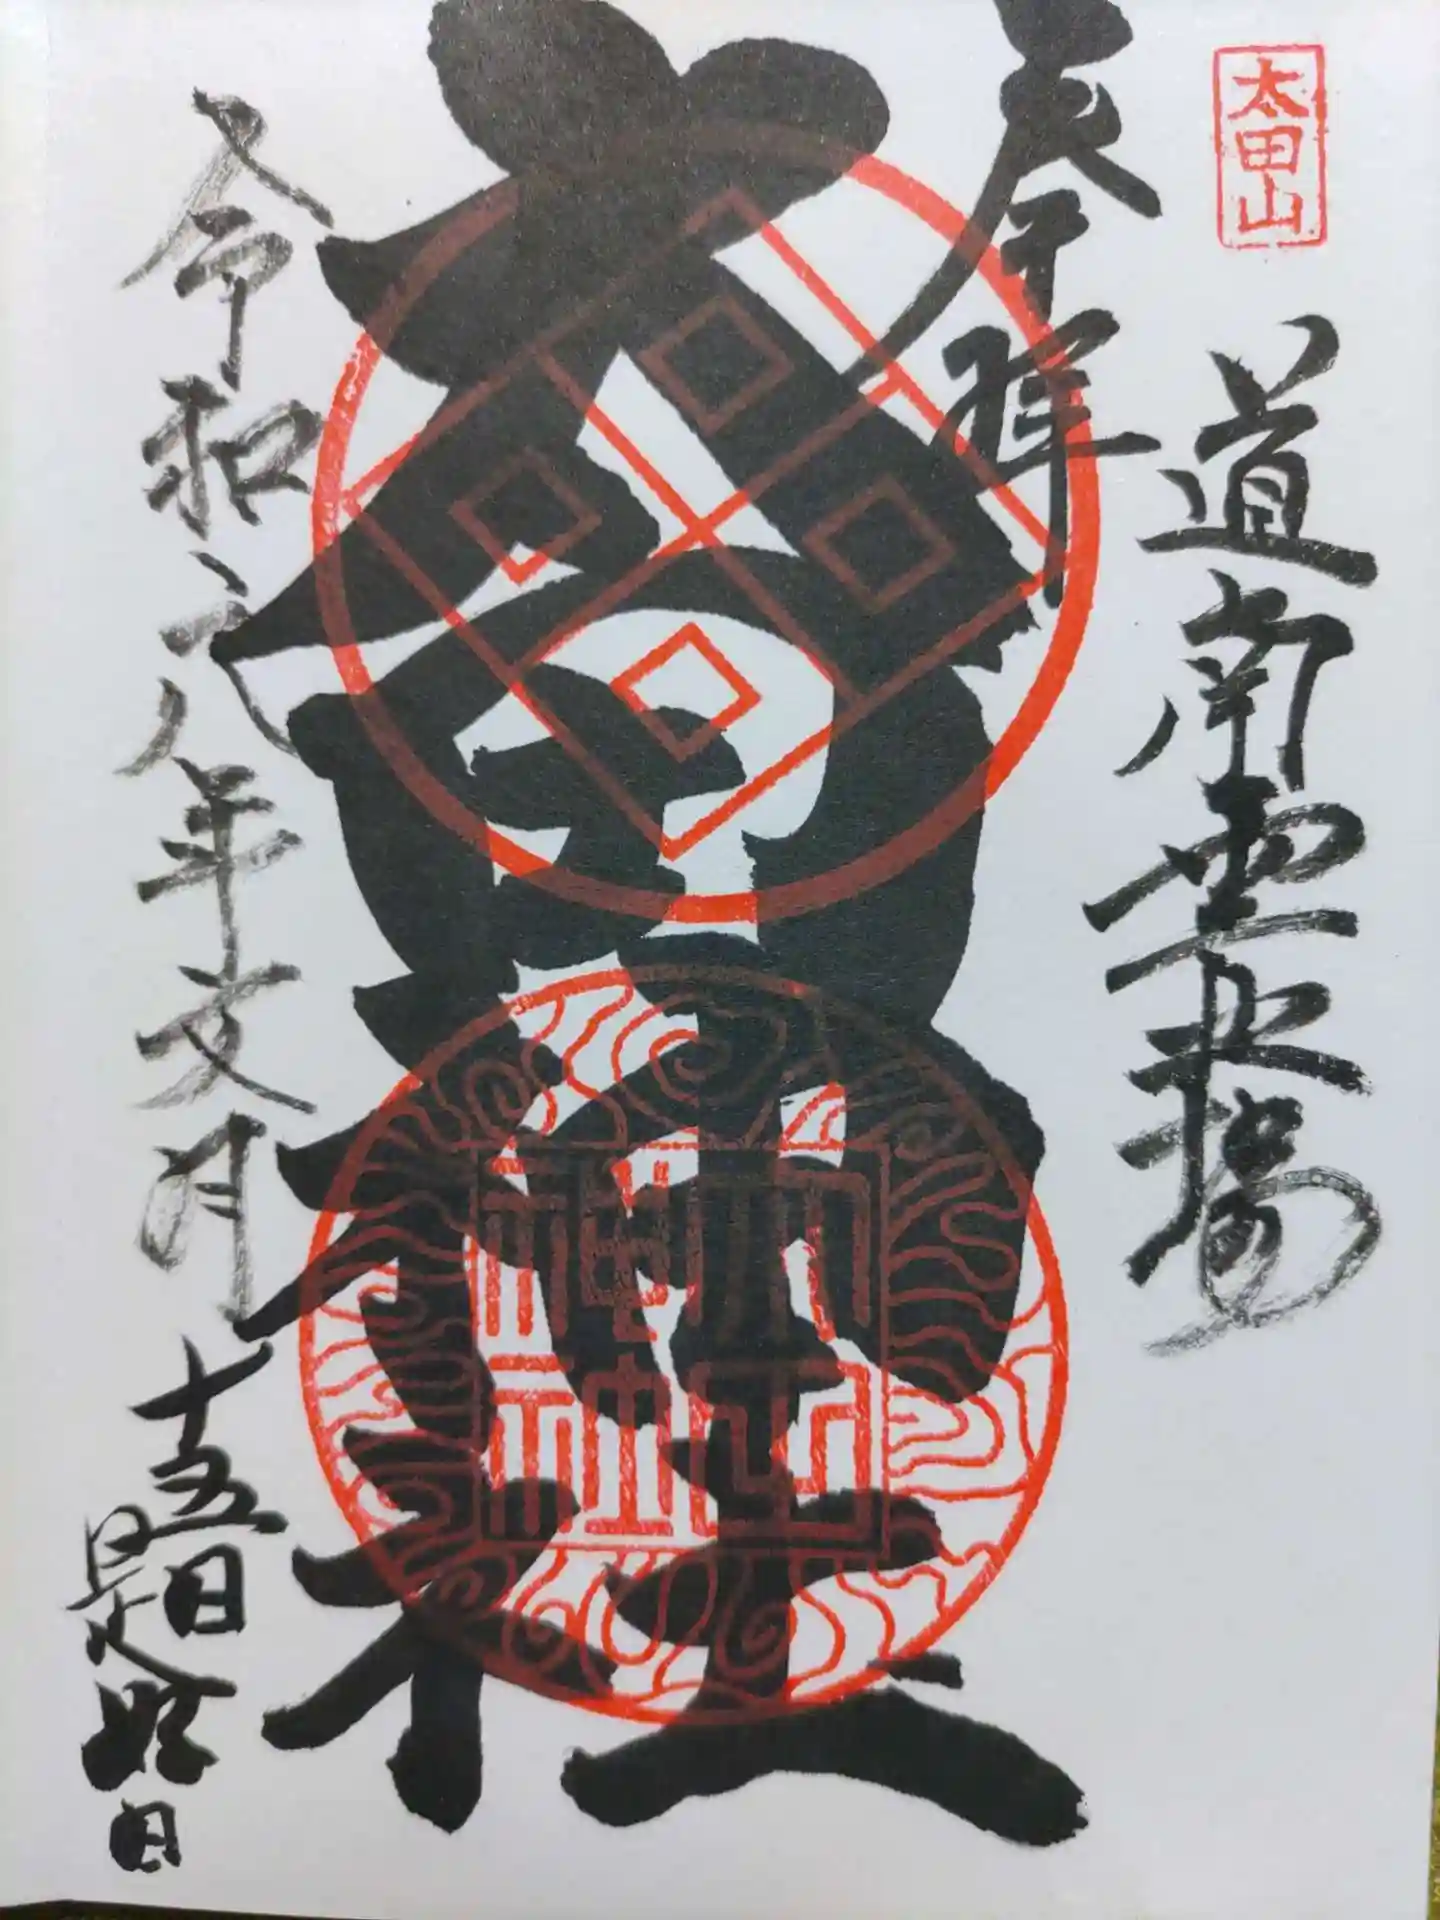 太田山
道南霊場
奉拝
太田神社
令和六年文月十五日
是好日